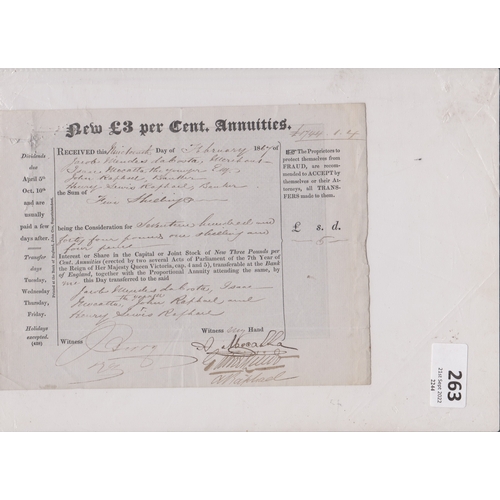 New £3 per Cent. Annuities.
£1744.1.4
Dividends
due
April 5th
Oct. 10th
and are
usually
paid a few
days after.
Transfer
days
Tuesday
Wednesday
Thursday,
Friday.
Holidays
excepted.
RECEIVED this Day of February
Jacob Mendes da Costa, Merchant
Isaac Mocatta the younger Esq.
John Raphael Banker
Henry Lewis Raphael, Banker
the Sum of Five Shillings
being the Consideration for Seventeen hundred and
forty four pounds one shilling and
four pence
Interest or Share in the Capital or Joint Stock of New Three Pounds per
Cent. Annuities (erected by two several Acts of Parliament of the 7th Year of
the Reign of Her Majesty Queen Victoria, cap. 4 and 5), transferable at the Bank
of England, together with the Proportional Annuity attending the same, by
this Day transferred to the said
Jacob Mendes da Costa, Isaac
Mocatta the younger John Raphael and
Henry Lewis Raphael
Witness Hand
Witness
Mocatta
Raphael
The Proprietors to
protect themselves from
FRAUD, are recom-
mended to ACCEPT by
themselves or their At-
torneys, all TRANS-
FERS made to them.
£ s. d.
5
263
21st Sept 2022
2244